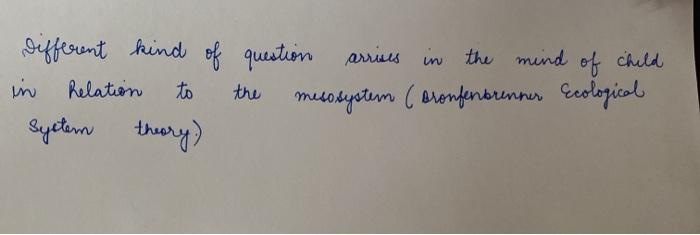 Different kind of question arrises in the mind of child
in Relation to the mesosystem ( Bronfenbrenner Ecological
System theory.)